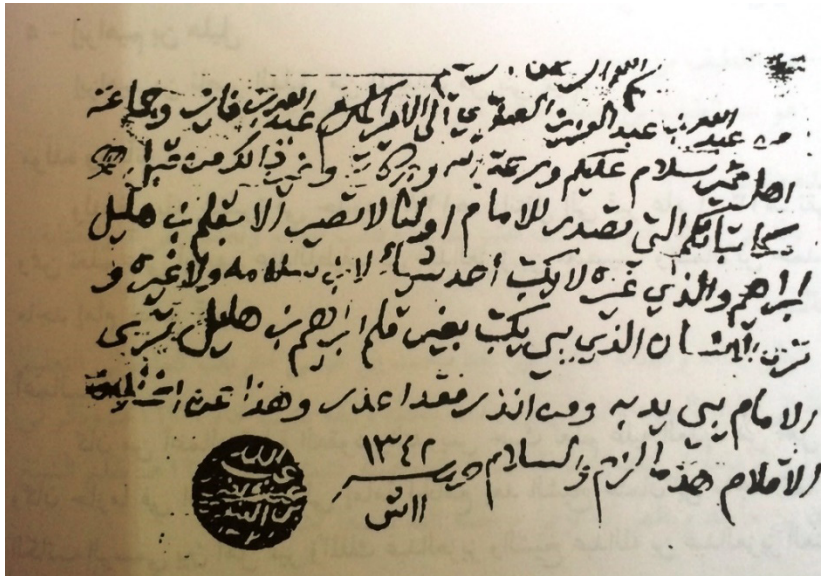 بسم الله الرحمن الرحيم
من عبد العزيز العنقري الى الامير المكرم عبد العزيز بن فايز وجماعة
اهل سلام عليكم ورحمة الله وبركاته وغير ذالك من قبل
كتاباتكم التي تصدر للامام اولنا لا تصير الا بقلم بن هليل
ابراهيم والذي غيره لا يكتب أحد شياء لا بن سلامه ولا غيره و
الانسان الذي يبي يكتب بغير قلم ابراهيم بن هليل تري
الامام يبي يدبه ومن انذر فقد اعذر وهذا عن
الاقلام هذا ما لزم والسلام
١٣٤٢
١١ ش